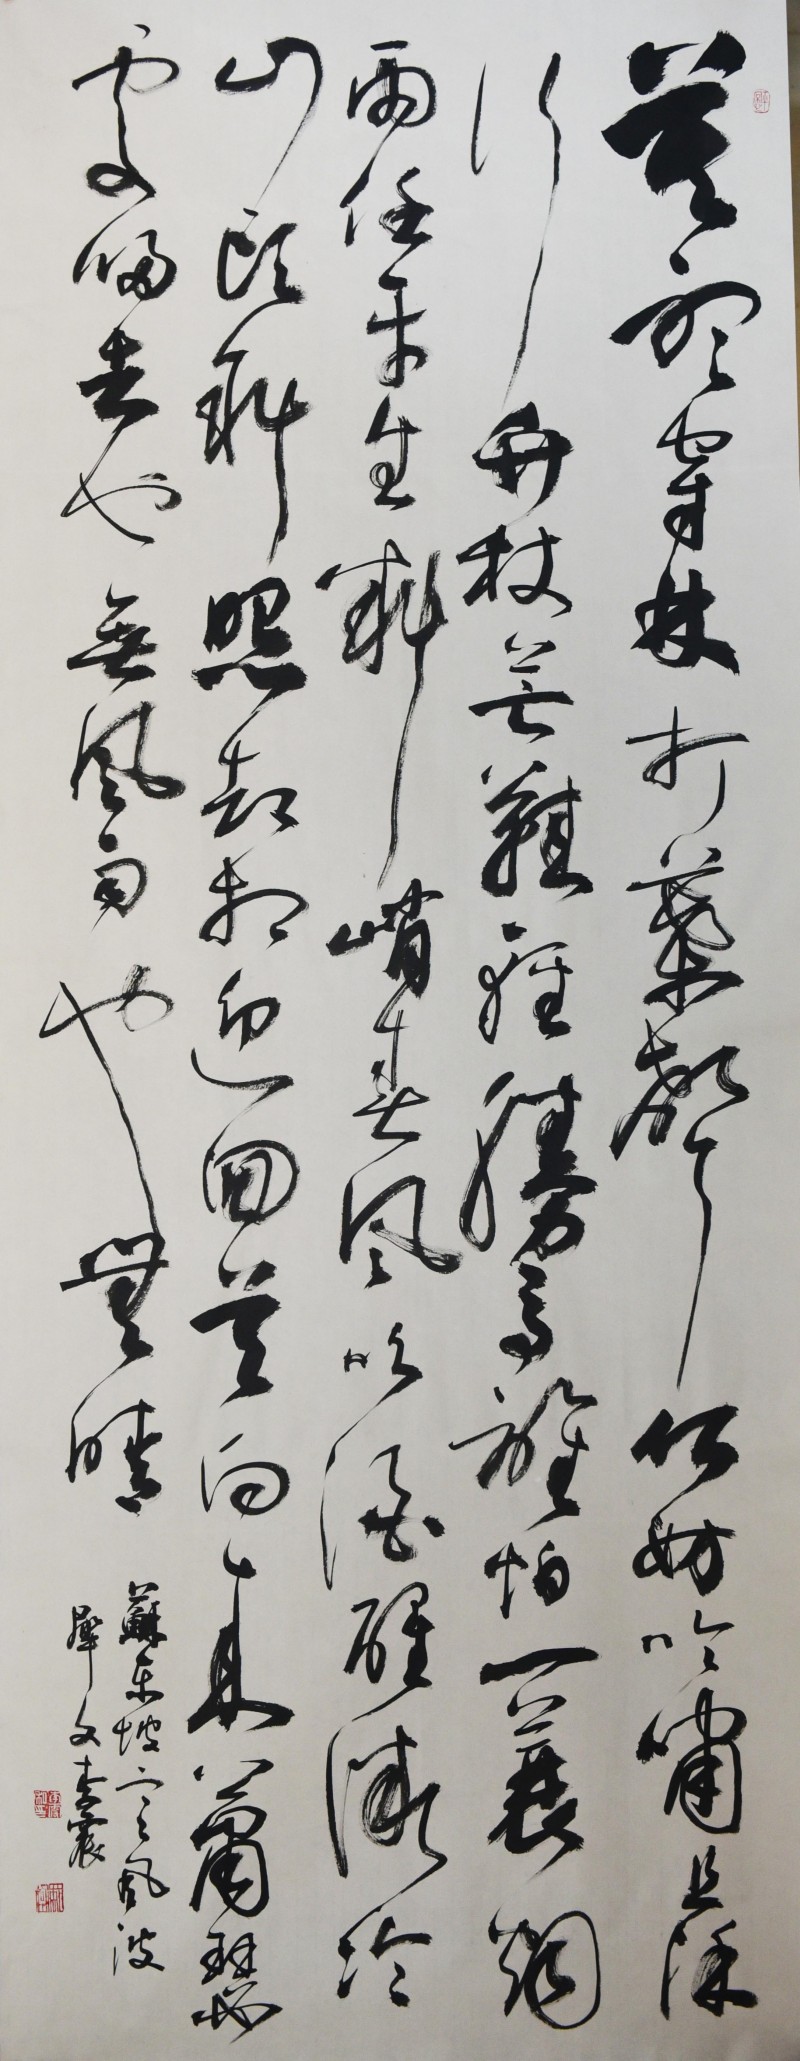 莫聽穿林打葉聲何妨吟嘯且徐
行竹杖芒鞋輕勝馬誰怕一蓑烟
雨任平生料峭春風吹酒醒微冷
山頭斜照却相迎回首向来蕭瑟
處歸去也無風雨也無晴
蘇东坡定風波
文李震